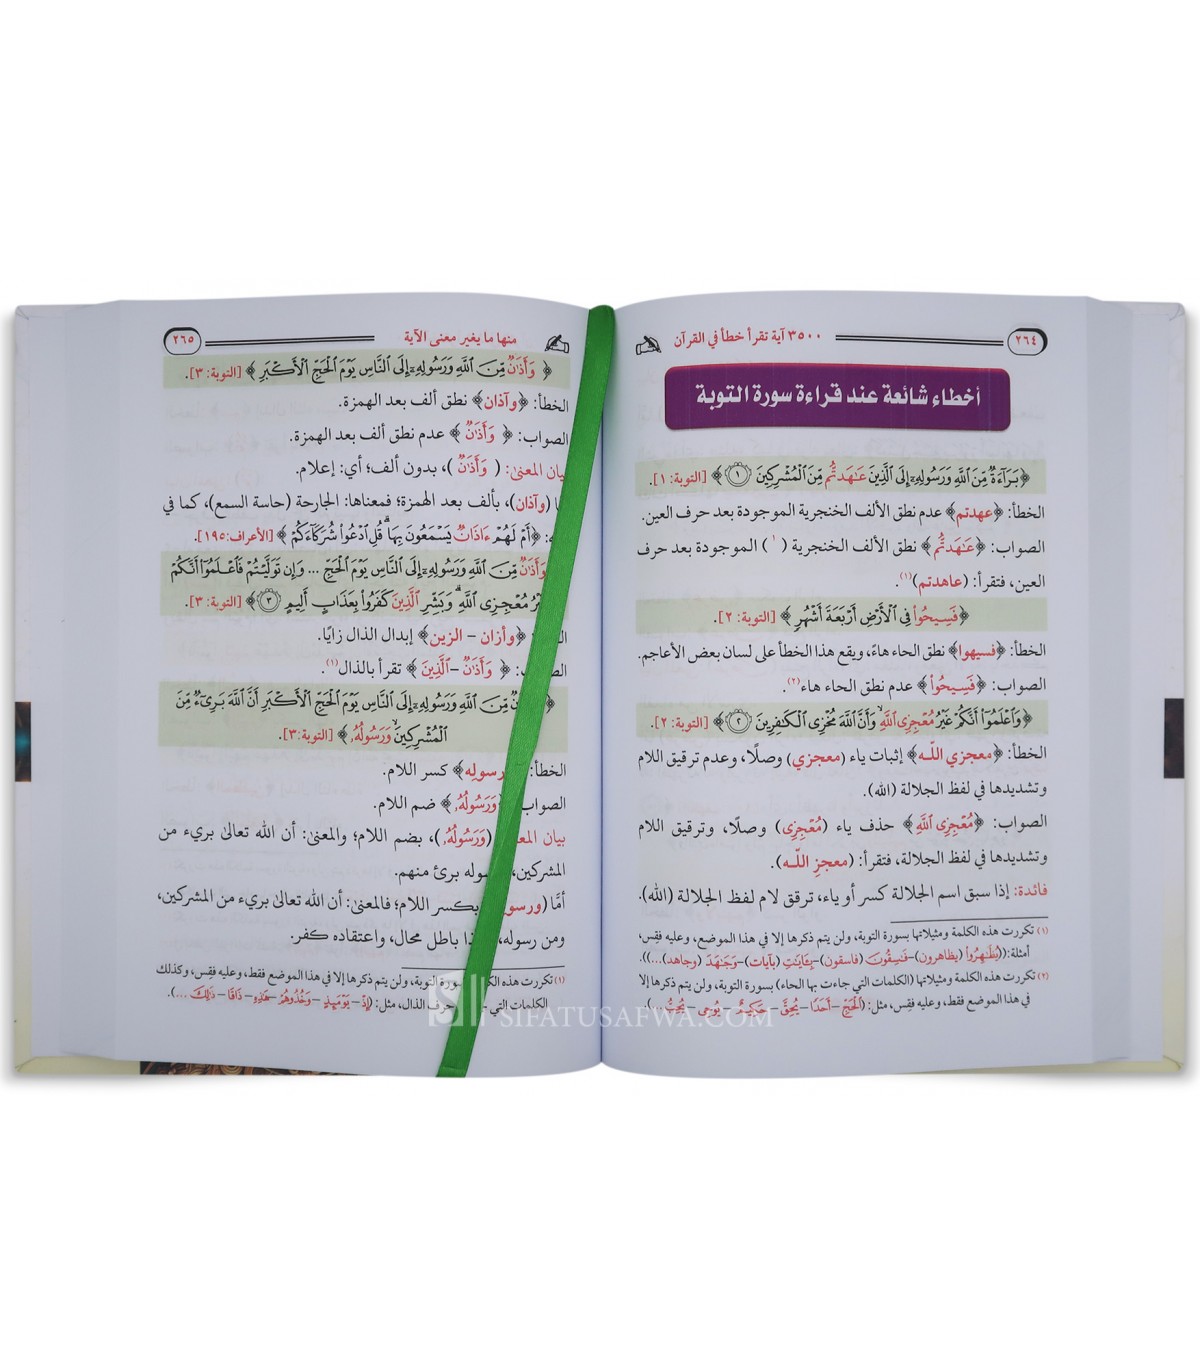 ٢٦٤
٣٥٠٠ آية تقرأ خطأ في القرآن
أخطاء شائعة عند قراءة سورة التوبة
﴿بَرَآءَةٌ مِّنَ ٱللَّهِ وَرَسُولِهِۦٓ إِلَى ٱلَّذِينَ عَٰهَدتُّم مِّنَ ٱلْمُشْرِكِينَ ١﴾ [التوبة: ١].
الخطأ: ﴿عهدتم﴾ عدم نطق الألف الخنجرية الموجودة بعد حرف العين.
الصواب: ﴿عَٰهَدتُّم﴾ نطق الألف الخنجرية ( ٰ ) الموجودة بعد حرف
العين، فتقرأ: (عاهدتم)(١).
﴿فَسِيحُوا۟ فِى ٱلْأَرْضِ أَرْبَعَةَ أَشْهُرٍ﴾ [التوبة: ٢].
الخطأ: ﴿فسيهوا﴾ نطق الحاء هاءً، ويقع هذا الخطأ على لسان بعض الأعاجم.
الصواب: ﴿فَسِيحُوا۟﴾ عدم نطق الحاء هاء(٢).
﴿وَٱعْلَمُوٓا۟ أَنَّكُمْ غَيْرُ مُعْجِزِى ٱللَّهِ ۙ وَأَنَّ ٱللَّهَ مُخْزِى ٱلْكَٰفِرِينَ ٢﴾ [التوبة: ٢].
الخطأ: ﴿معجزي اللـه﴾ إثبات ياء (معجزي) وصلًا، وعدم ترقيق اللام
وتشديدها في لفظ الجلالة (الله).
الصواب: ﴿مُعْجِزِى ٱللَّهِ﴾ حذف ياء (مُعْجِزِى) وصلًا، وترقيق اللام
وتشديدها في لفظ الجلالة، فتقرأ: (معجزِ اللـه).
فائدة: إذا سبق اسم الجلالة كسر أو ياء، ترقق لام لفظ الجلالة (الله).
(١) تكررت هذه الكلمة ومثيلاتها بسورة التوبة، ولن يتم ذكرها إلا في هذا الموضع، وعليه فقِس،
أمثلة: ((يُظَٰهِرُوا۟ (يظاهرون)– فَٰسِقُونَ (فاسقون)–بِـَٔايَٰتِ (بآيات)–وَجَٰهَدَ (وجاهد)...)).
(٢) تكررت هذه الكلمة ومثيلاتها (الكلمات التي جاءت بها الحاء) بسورة التوبة، ولن يتم ذكرها إلا
في هذا الموضع فقط، وعليه فقِس، مثل: (ٱلْحَجِّ – أَحَدًا – يُحِقَّ – حَكِيمٌ – يُوحِى – يُحِبُّ ...).
منها ما يغير معنى الآية
٢٦٥
﴿وَأَذَٰنٌ مِّنَ ٱللَّهِ وَرَسُولِهِۦٓ إِلَى ٱلنَّاسِ يَوْمَ ٱلْحَجِّ ٱلْأَكْبَرِ﴾ [التوبة: ٣].
الخطأ: ﴿وآذان﴾ نطق ألف بعد الهمزة.
الصواب: ﴿وَأَذَٰنٌ﴾ عدم نطق ألف بعد الهمزة.
بيان المعنى: (وَأَذَٰنٌ)، بدون ألف؛ أي: إعلام.
(وآذان)، بألف بعد الهمزة؛ فمعناها: الجارحة (حاسة السمع)، كما في
﴿أَمْ لَهُمْ ءَاذَانٌ يَسْمَعُونَ بِهَا ۗ قُلِ ٱدْعُوا۟ شُرَكَآءَكُمْ﴾ [الأعراف:١٩٥].
وَأَذَٰنٌ مِّنَ ٱللَّهِ وَرَسُولِهِۦٓ إِلَى ٱلنَّاسِ يَوْمَ ٱلْحَجِّ ... وَإِن تَوَلَّيْتُمْ فَٱعْلَمُوٓا۟ أَنَّكُمْ
مُعْجِزِى ٱللَّهِ ۗ وَبَشِّرِ ٱلَّذِينَ كَفَرُوا۟ بِعَذَابٍ أَلِيمٍ ٣﴾ [التوبة: ٣].
﴿وأزان – الزين﴾ إبدال الذال زايًا.
﴿وَأَذَٰنٌ –ٱلَّذِينَ﴾ تقرأ بالذال(١).
مِّنَ ٱللَّهِ وَرَسُولِهِۦٓ إِلَى ٱلنَّاسِ يَوْمَ ٱلْحَجِّ ٱلْأَكْبَرِ أَنَّ ٱللَّهَ بَرِىٓءٌ مِّنَ
ٱلْمُشْرِكِينَ ۙ وَرَسُولُهُۥ﴾ [التوبة:٣].
الخطأ: ورسولِه﴾ كسر اللام.
الصواب: ﴿وَرَسُولُهُۥ﴾ ضم اللام.
بيان المعنى: (وَرَسُولُهُۥ)، بضم اللام؛ والمعنى: أن الله تعالى بريء من
المشركين، ورسوله برئ منهم.
أمَّا (ورسولِه) بكسر اللام؛ فالمعنى: أن الله تعالى بريء من المشركين،
ومن رسوله، وهذا باطل محال، واعتقاده كفر.
(١) تكررت هذه الكلمة بسورة التوبة، ولن يتم ذكرها إلا في هذا الموضع فقط، وعليه فقِس، وكذلك
الكلمات التي حرف الذال، مثل: (إِذْ – يَوْمَئِذٍ – وَخُذُوهُمْ – هَٰذِهِ – ذَاقَا – ذَٰلِكَ ...).
SIFATUSAFWA.COM